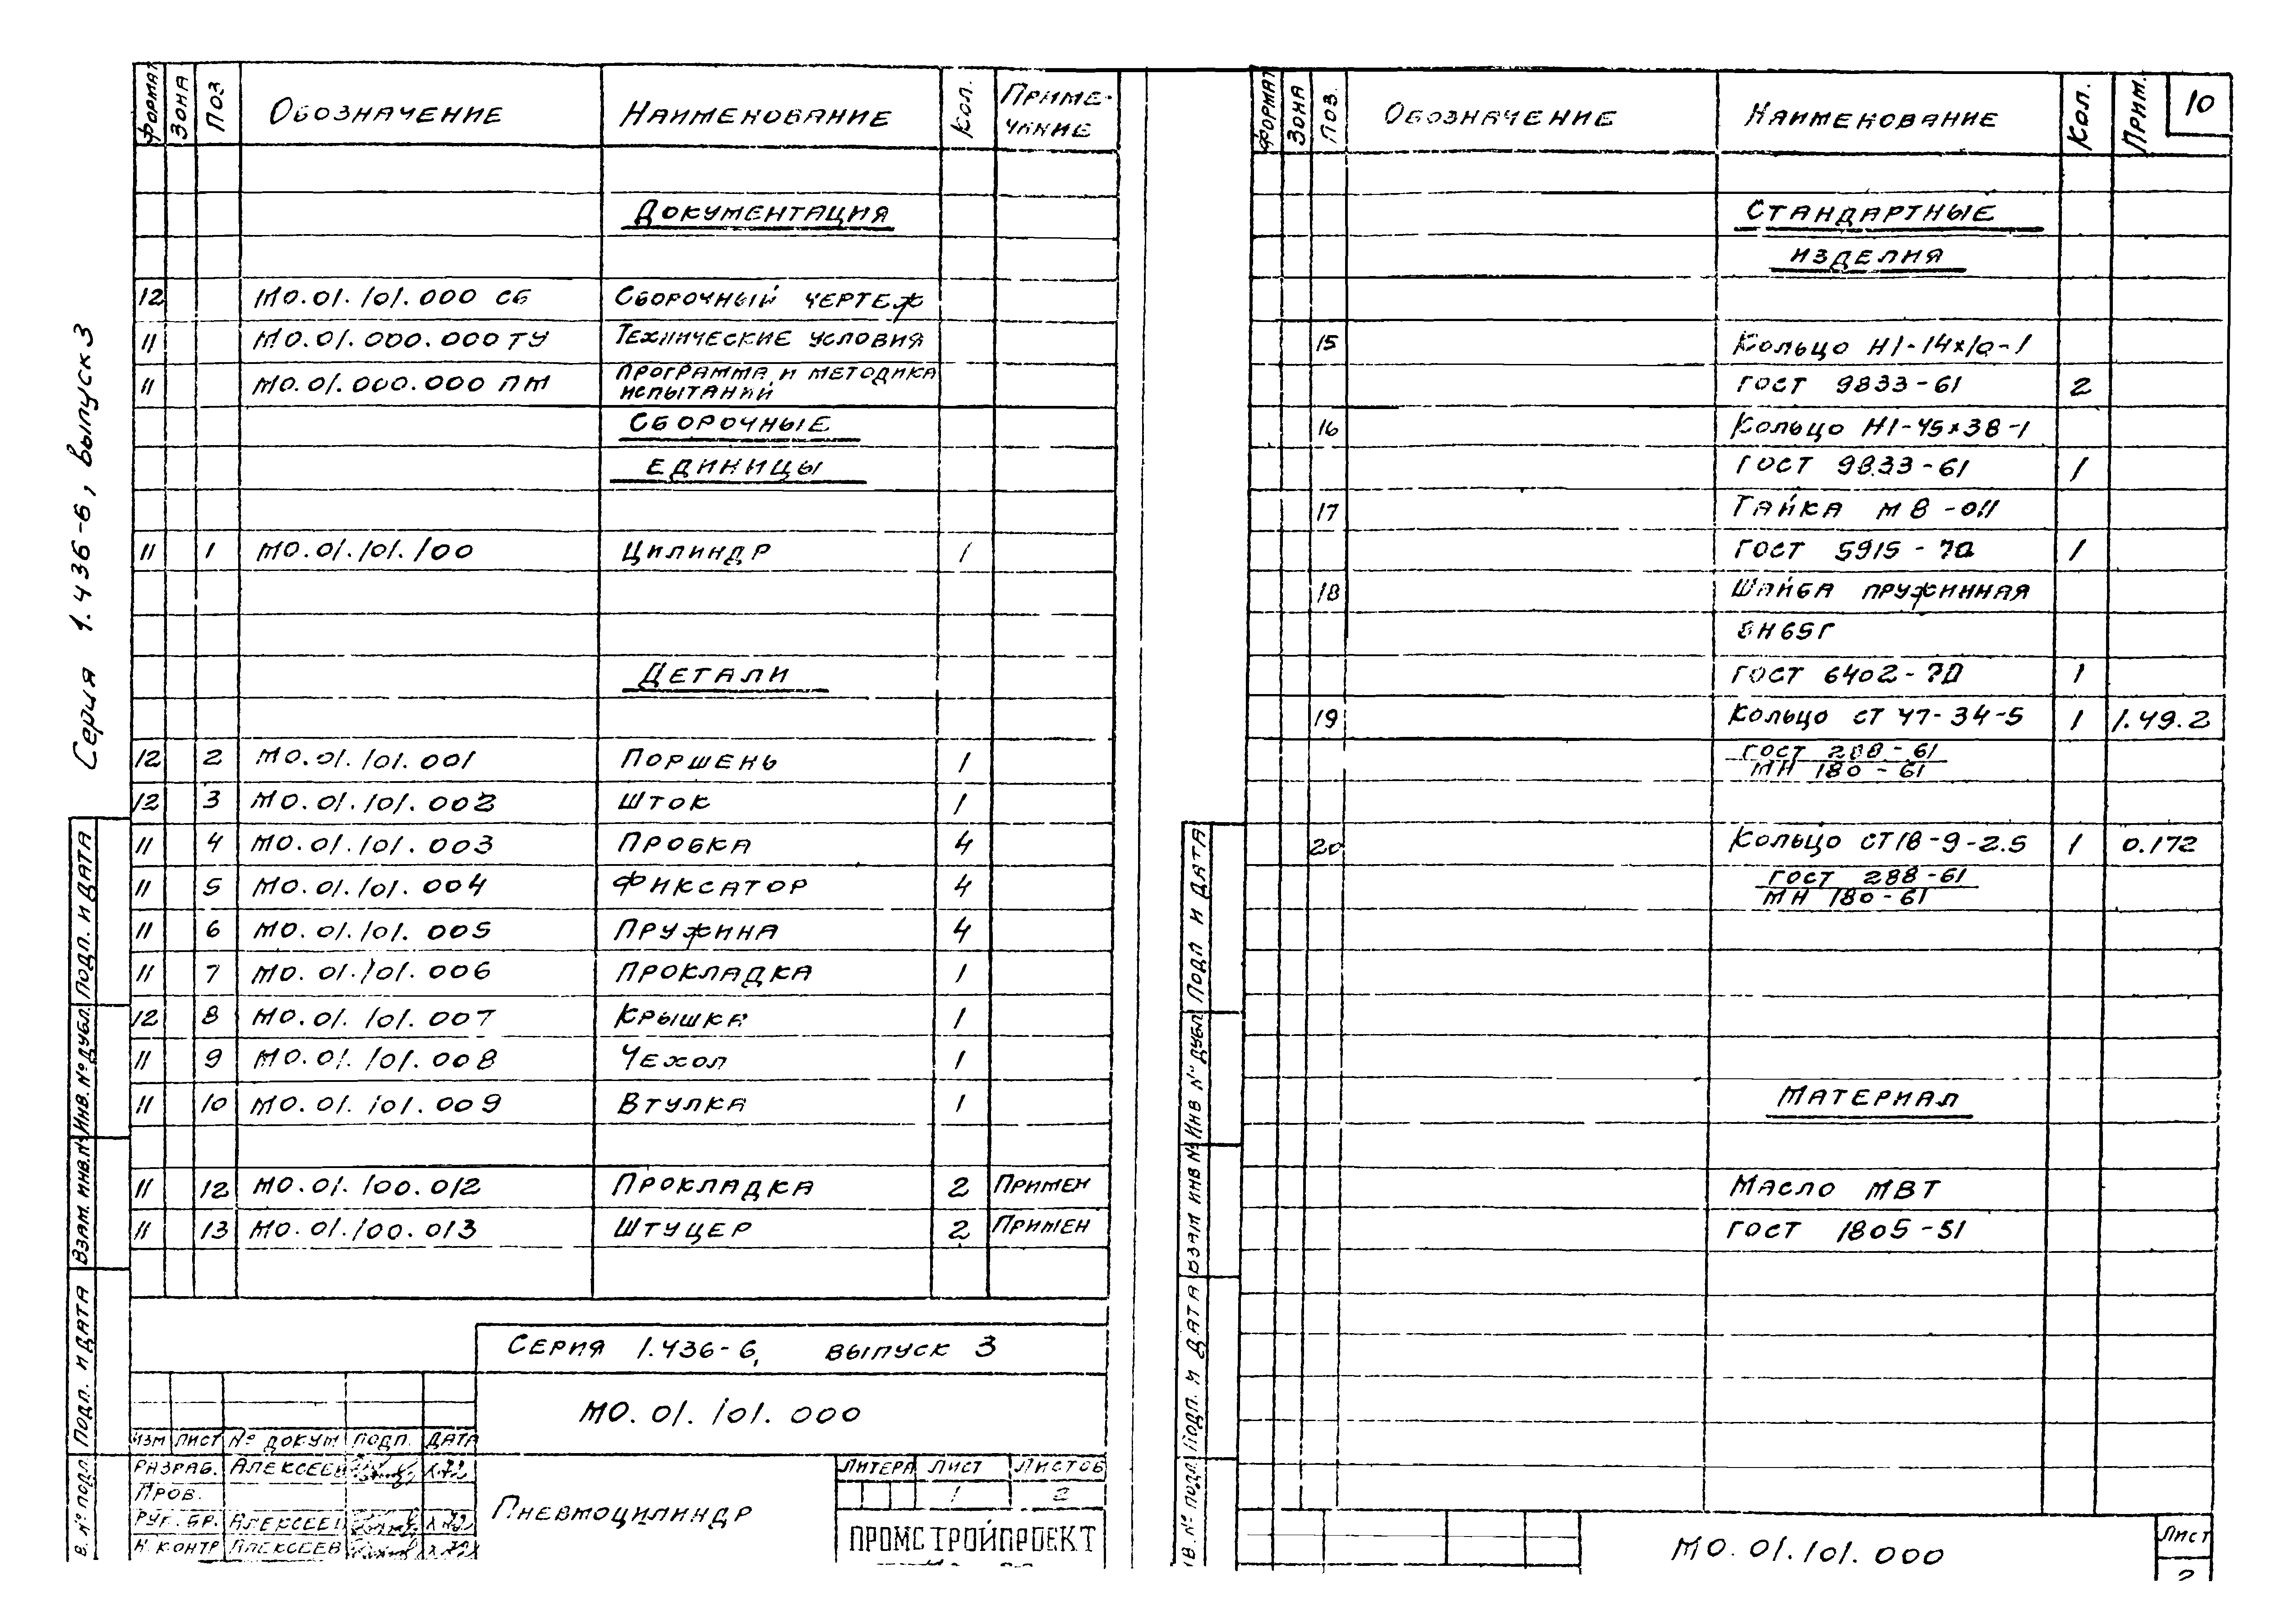 Серия 1.436-6, выпуск 3
Формат Зона Поз Обозначение Наименование Кол. Примечание
Документация
12 МО.01.101.000 СБ Сборочный чертеж
11 МО.01.000.000 ТУ Технические условия
11 МО.01.000.000 ПМ Программа и методика
испытаний
Сборочные
единицы
11 1 МО.01.101.100 Цилиндр 1
Детали
12 2 МО.01.101.001 Поршень 1
12 3 МО.01.101.002 Шток 1
11 4 МО.01.101.003 Пробка 4
11 5 МО.01.101.004 Фиксатор 4
11 6 МО.01.101.005 Пружина 4
11 7 МО.01.101.006 Прокладка 1
12 8 МО.01.101.007 Крышка 1
11 9 МО.01.101.008 Чехол 1
11 10 МО.01.101.009 Втулка 1
11 12 МО.01.100.012 Прокладка 2 Примен
11 13 МО.01.100.013 Штуцер 2 Примен
Серия 1.436-6, выпуск 3
МО.01.101.000
Изм Лист № докум Подп. Дата
Разраб. Алексеев X.72
Пров.
Рук. бр. Алексеев X.72
Н. контр Алексеев X.72
Пневмоцилиндр
Литера Лист Листов
1 2
ПРОМСТРОЙПРОЕКТ
В. № подл. Подп. и дата Взам. инв. № Инв. № дубл. Подп. и дата
Формат Зона Поз. Обозначение Наименование Кол. Прим. 10
Стандартные
изделия
15 Кольцо Н1-14х10-1
ГОСТ 9833-61 2
16 Кольцо Н1-45х38-1
ГОСТ 9833-61 1
17 Гайка М8-011
ГОСТ 5915-70 1
18 Шайба пружинная
8Н65Г
ГОСТ 6402-70 1
19 Кольцо СТ 47-34-5 1 1.49.2
ГОСТ 288-61
МН 180-61
20 Кольцо СТ18-9-2.5 1 0.172
ГОСТ 288-61
МН 180-61
Материал
Масло МВТ
ГОСТ 1805-51
МО.01.101.000
Лист
2
ИВ. № подл. Подп. и дата Взам инв № Инв № дубл Подп и дата